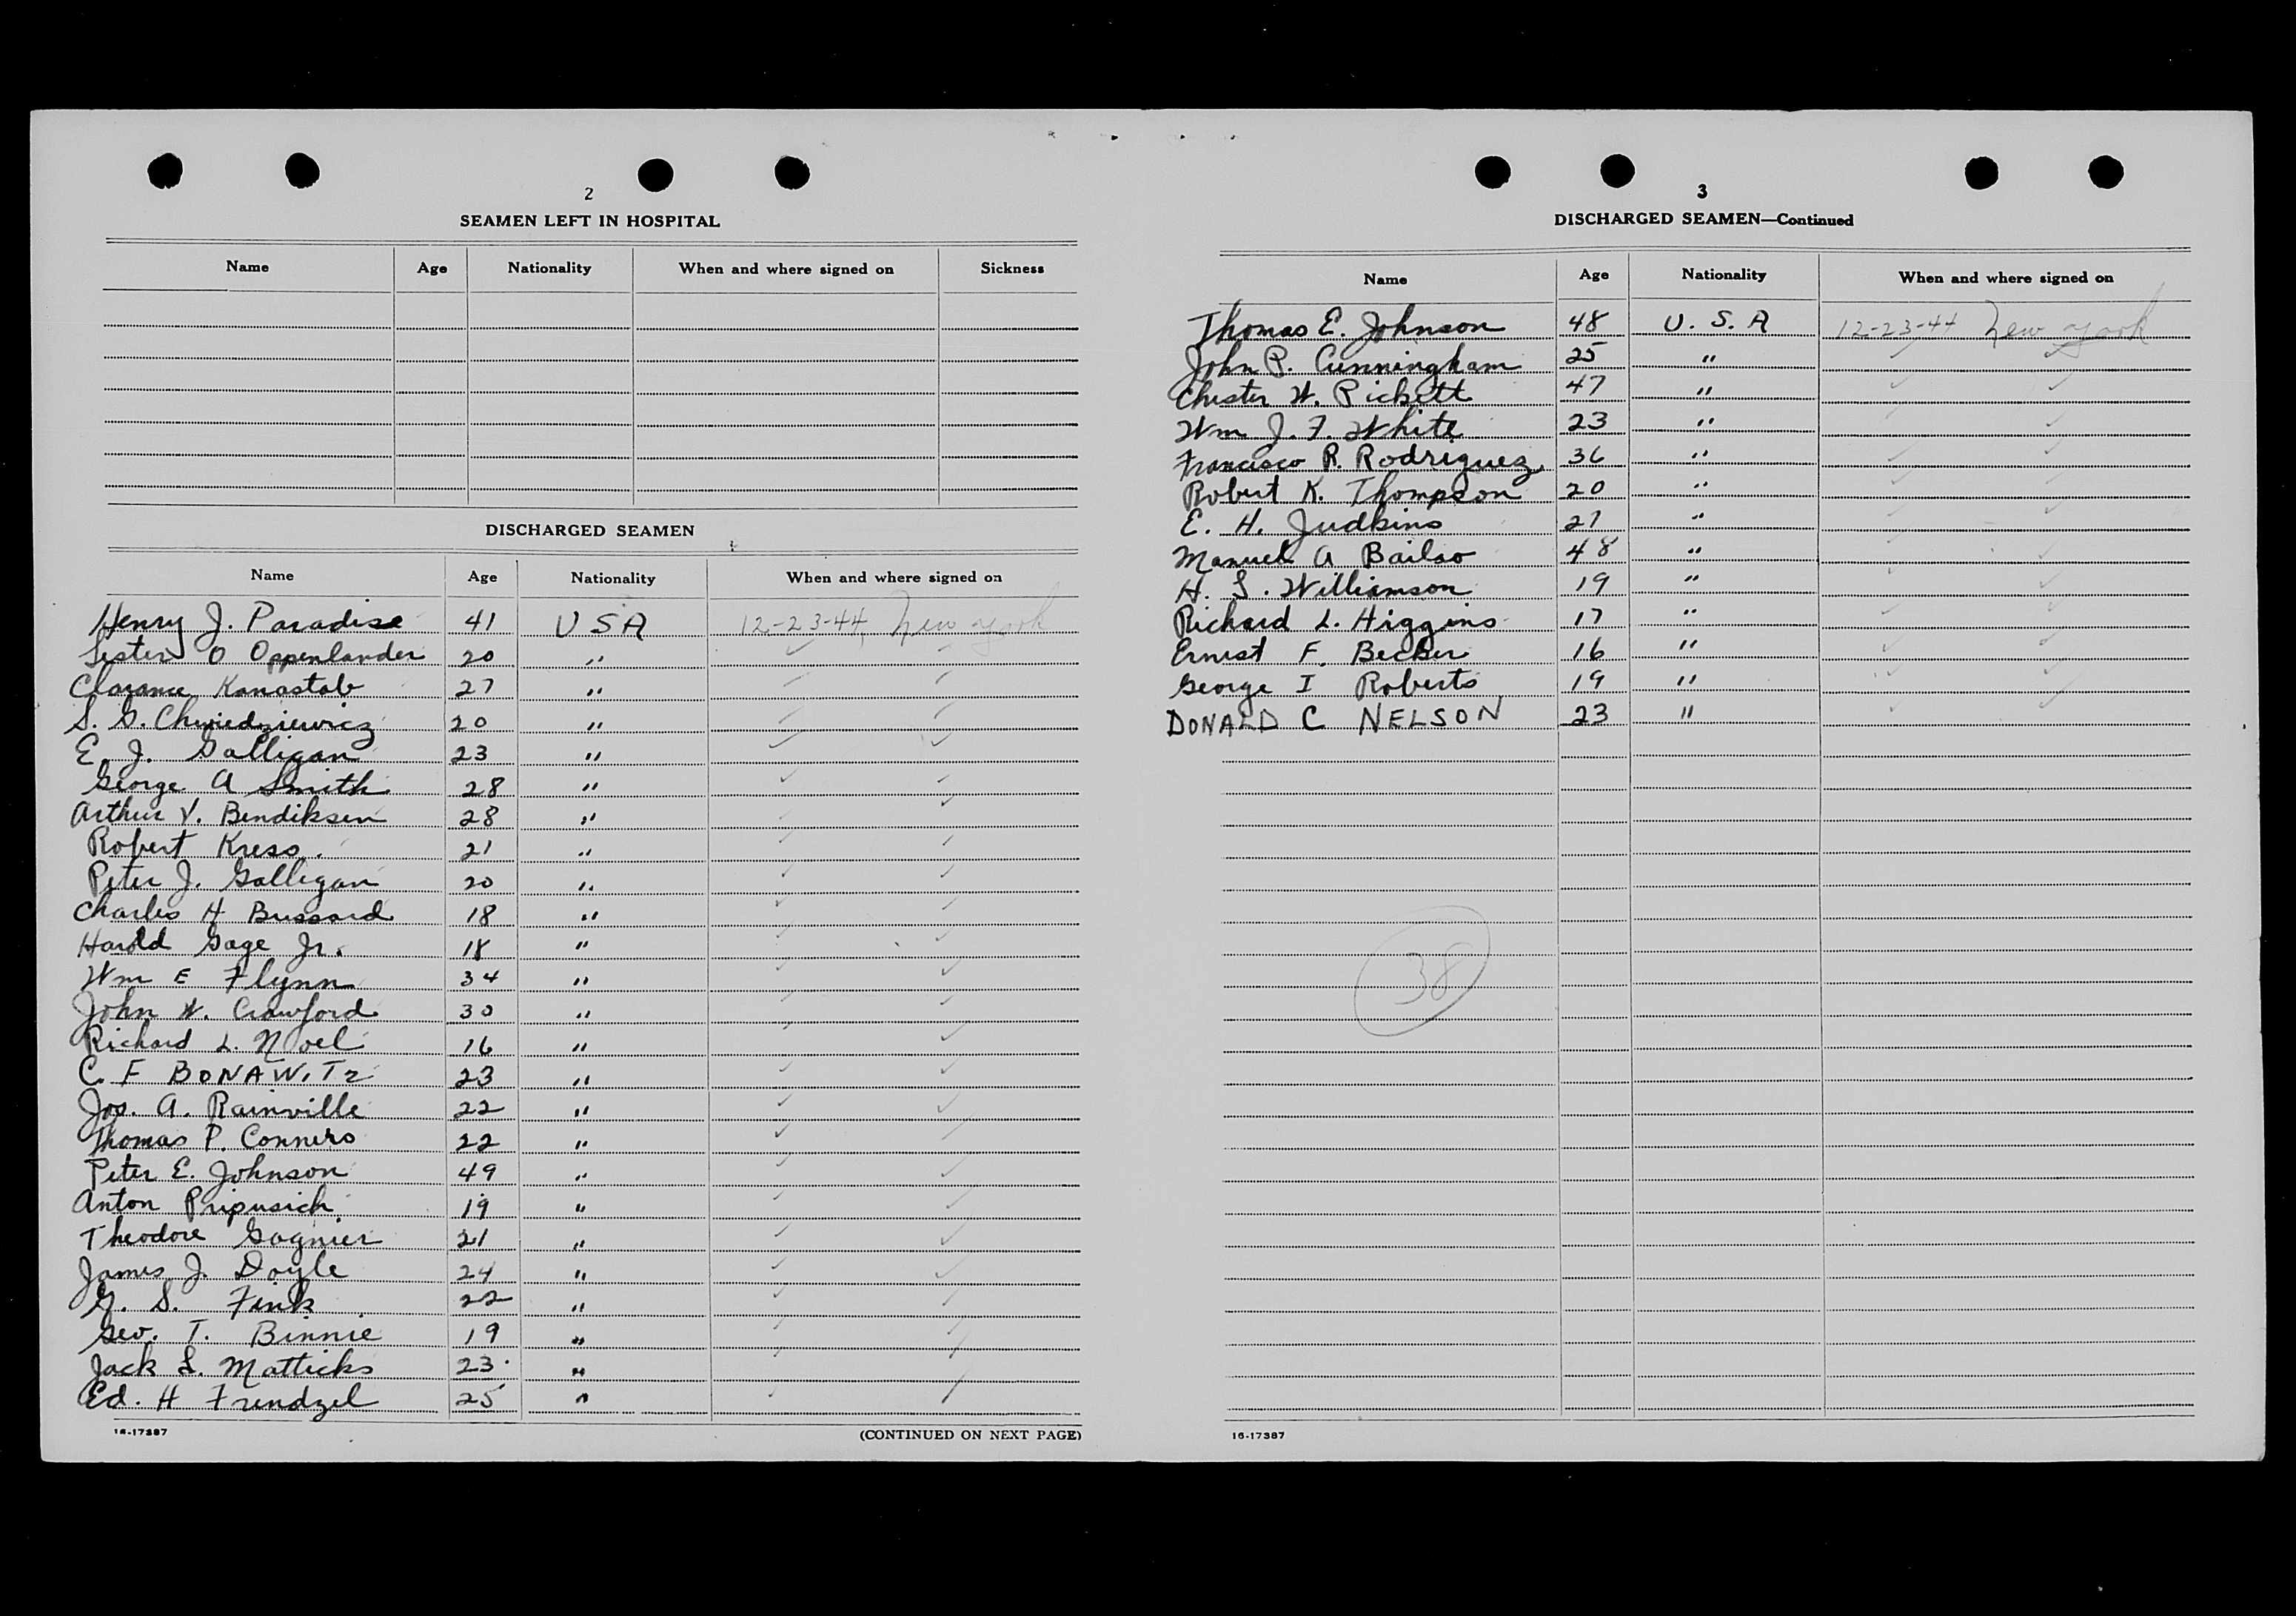 2
SEAMEN LEFT IN HOSPITAL
Name Age Nationality When and where signed on Sickness
DISCHARGED SEAMEN
Name Age Nationality When and where signed on
Henry J. Paradise 41 USA 12-23-44, New York
Lester O Oppenlander 20 "
Clarance Kanastab 27 "
S. G. Chwiedziewicz 20 "
E. J. Galligan 23 "
George A Smith 28 "
Arthur V. Bendiksen 28 "
Robert Kress. 21 "
Peter J. Galligan 20 "
Charles H Bussard 18 "
Harold Gage Jr. 18 "
Wm E Flynn 34 "
John W. Crawford 30 "
Richard L. Noel 16 "
C. F BONAWITZ 23 "
Jos. A. Rainville 22 "
Thomas P. Conners 22 "
Peter E. Johnson 49 "
Anton Pripusich 19 "
Theodore Gagnier 21 "
James J. Doyle 24 "
G. S. Fink 22 "
Geo. T. Binnie 19 "
Jack L. Matticks 23 "
Ed. H Frendzel 25 "
16-17387 (CONTINUED ON NEXT PAGE)
3
DISCHARGED SEAMEN—Continued
Name Age Nationality When and where signed on
Thomas E. Johnson 48 U.S.A 12-23-44 New York
John P. Cunningham 25 "
Chester W. Pickett 47 "
Wm J. F. White 23 "
Francisco R. Rodriguez 36 "
Robert K. Thompson 20 "
E. H. Judkins 27 "
Manuel A Bailao 48 "
H. S. Williamson 19 "
Richard L. Higgins 17 "
Ernest F. Becker 16 "
George I Roberts 19 "
DONALD C NELSON 23 "
38
16-17387